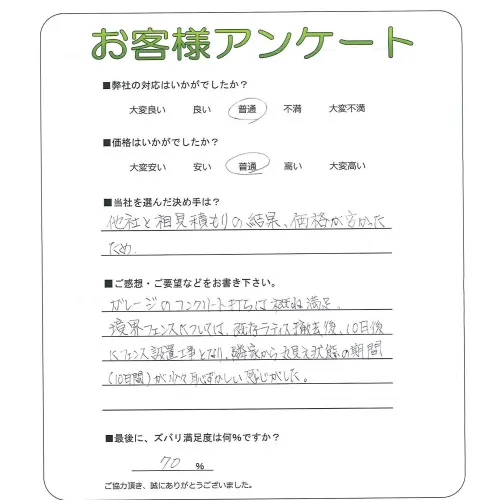 お客様アンケート
■弊社の対応はいかがでしたか？
大変良い 良い 普通 不満 大変不満
■価格はいかがでしたか？
大変安い 安い 普通 高い 大変高い
■当社を選んだ決め手は？
他社と相見積もりの結果、価格が安かった
ため.
■ご感想・ご要望などをお書き下さい。
ガレージのコンクリート打ちは概ね満足。
境界フェンスについては、既存ラティス撤去後、10日後
にフェンス設置工事となり、隣家から丸見え状態の期間
(10日間)が少々恥ずかしい感じがした。
■最後に、ズバリ満足度は何%ですか？
70 %
ご協力頂き、誠にありがとうございました。